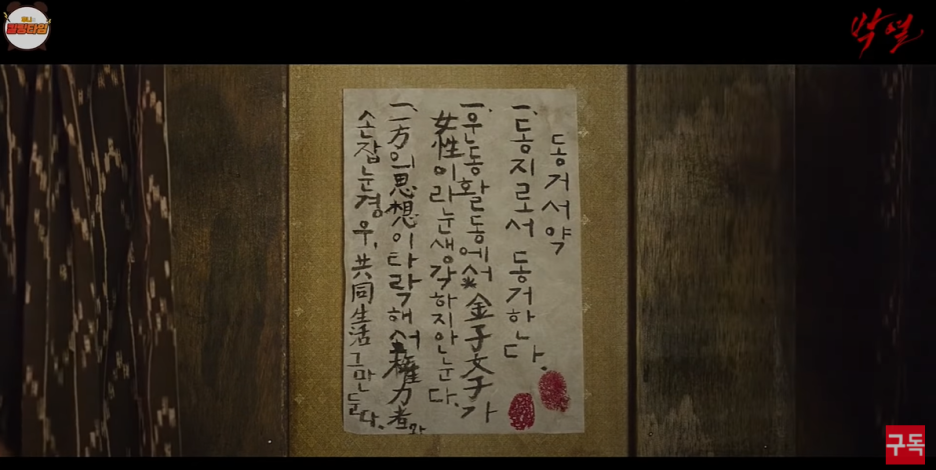 킬링타임
박열
동거서약
一. 동지로서 동거한다.
一. 운동활동에서 金子文子가
女性이라는생각하지안는다.
一. 一方의思想이타락해서權力者와
손잡는경우, 共同生活그만둔다.
구독